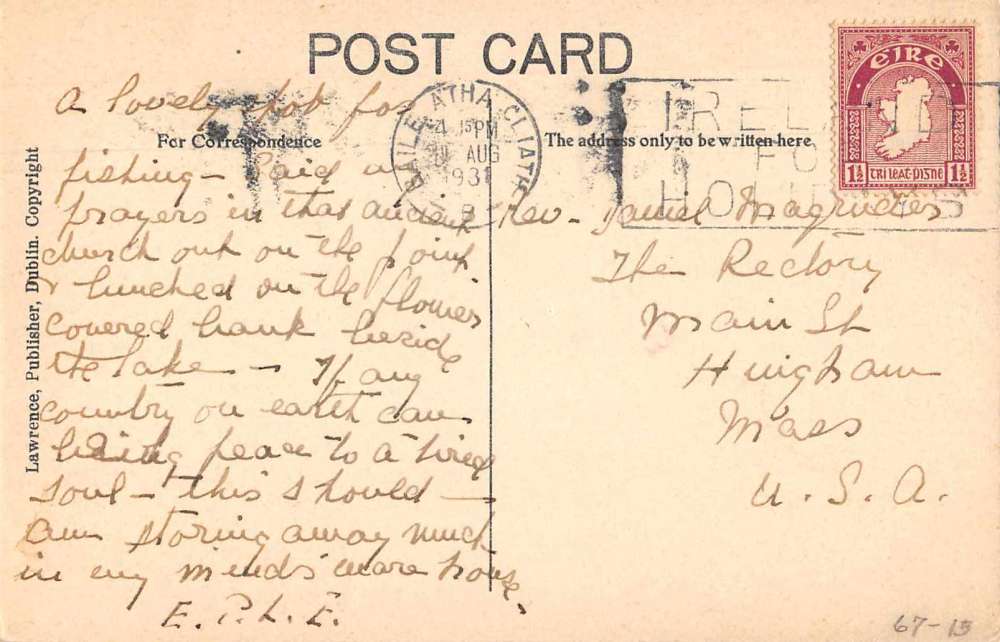 POST CARD
For Correspondence
The address only to be written here
Lawrence, Publisher, Dublin. Copyright
EIRE
1½ TRI LEAT-PISNE 1½
BAILE ÁTHA CLIATH
4 15PM
AUG
193
B
IRELAND
FOR
HOLIDAYS
A lovely spot for
fishing — Said
prayers in that ancient
church out on the point
& lunched on the flower
covered bank beside
the lake — If any
country on earth can
bring peace to a tired
soul — this should —
am storing away much
in my mind's ware house.
E. P. L. E.
Rev. Daniel Magruder
The Rectory
Main St
Hingham
Mass
U. S. A.
67-15